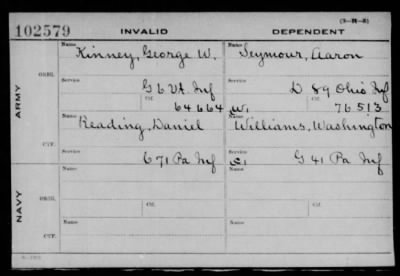 (3-H-5)
102579 INVALID DEPENDENT
Name Kinney, George W. Name Seymour, Aaron
ARMY ORIG. Service G 6 Vt. Inf Service D 89 Ohio Inf
Ctf. 64664 W. Ctf. 76513
CTF. Name Reading, Daniel Name Williams, Washington
Service C 71 Pa Inf Service G 41 Pa Inf
NAVY ORIG. Name Ctf. Name Ctf.
CTF. Name Name